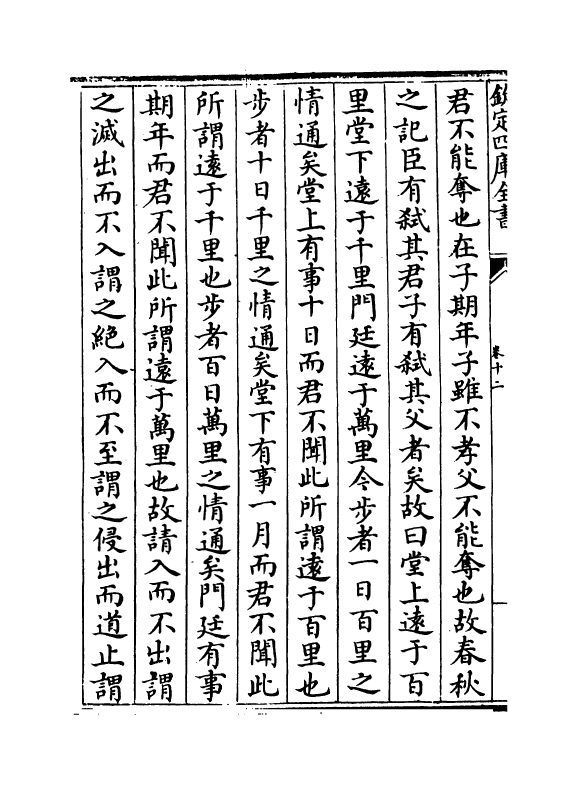 欽定四庫全書
卷十二
君不能奪也在子期年子雖不孝父不能奪也故春秋
之記臣有弑其君子有弑其父者矣故曰堂上遠于百
里堂下遠于千里門廷遠于萬里令步者一日百里之
情通矣堂上有事十日而君不聞此所謂遠于百里也
步者十日千里之情通矣堂下有事一月而君不聞此
所謂遠于千里也步者百日萬里之情通矣門廷有事
期年而君不聞此所謂遠于萬里也故請入而不出謂
之滅出而不入謂之絶入而不至謂之侵出而道止謂